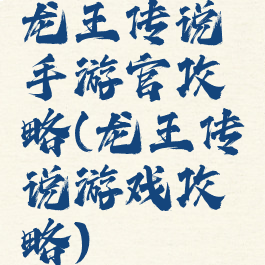 龙王传说
手游官攻
略(龙王传
说游戏攻
略)